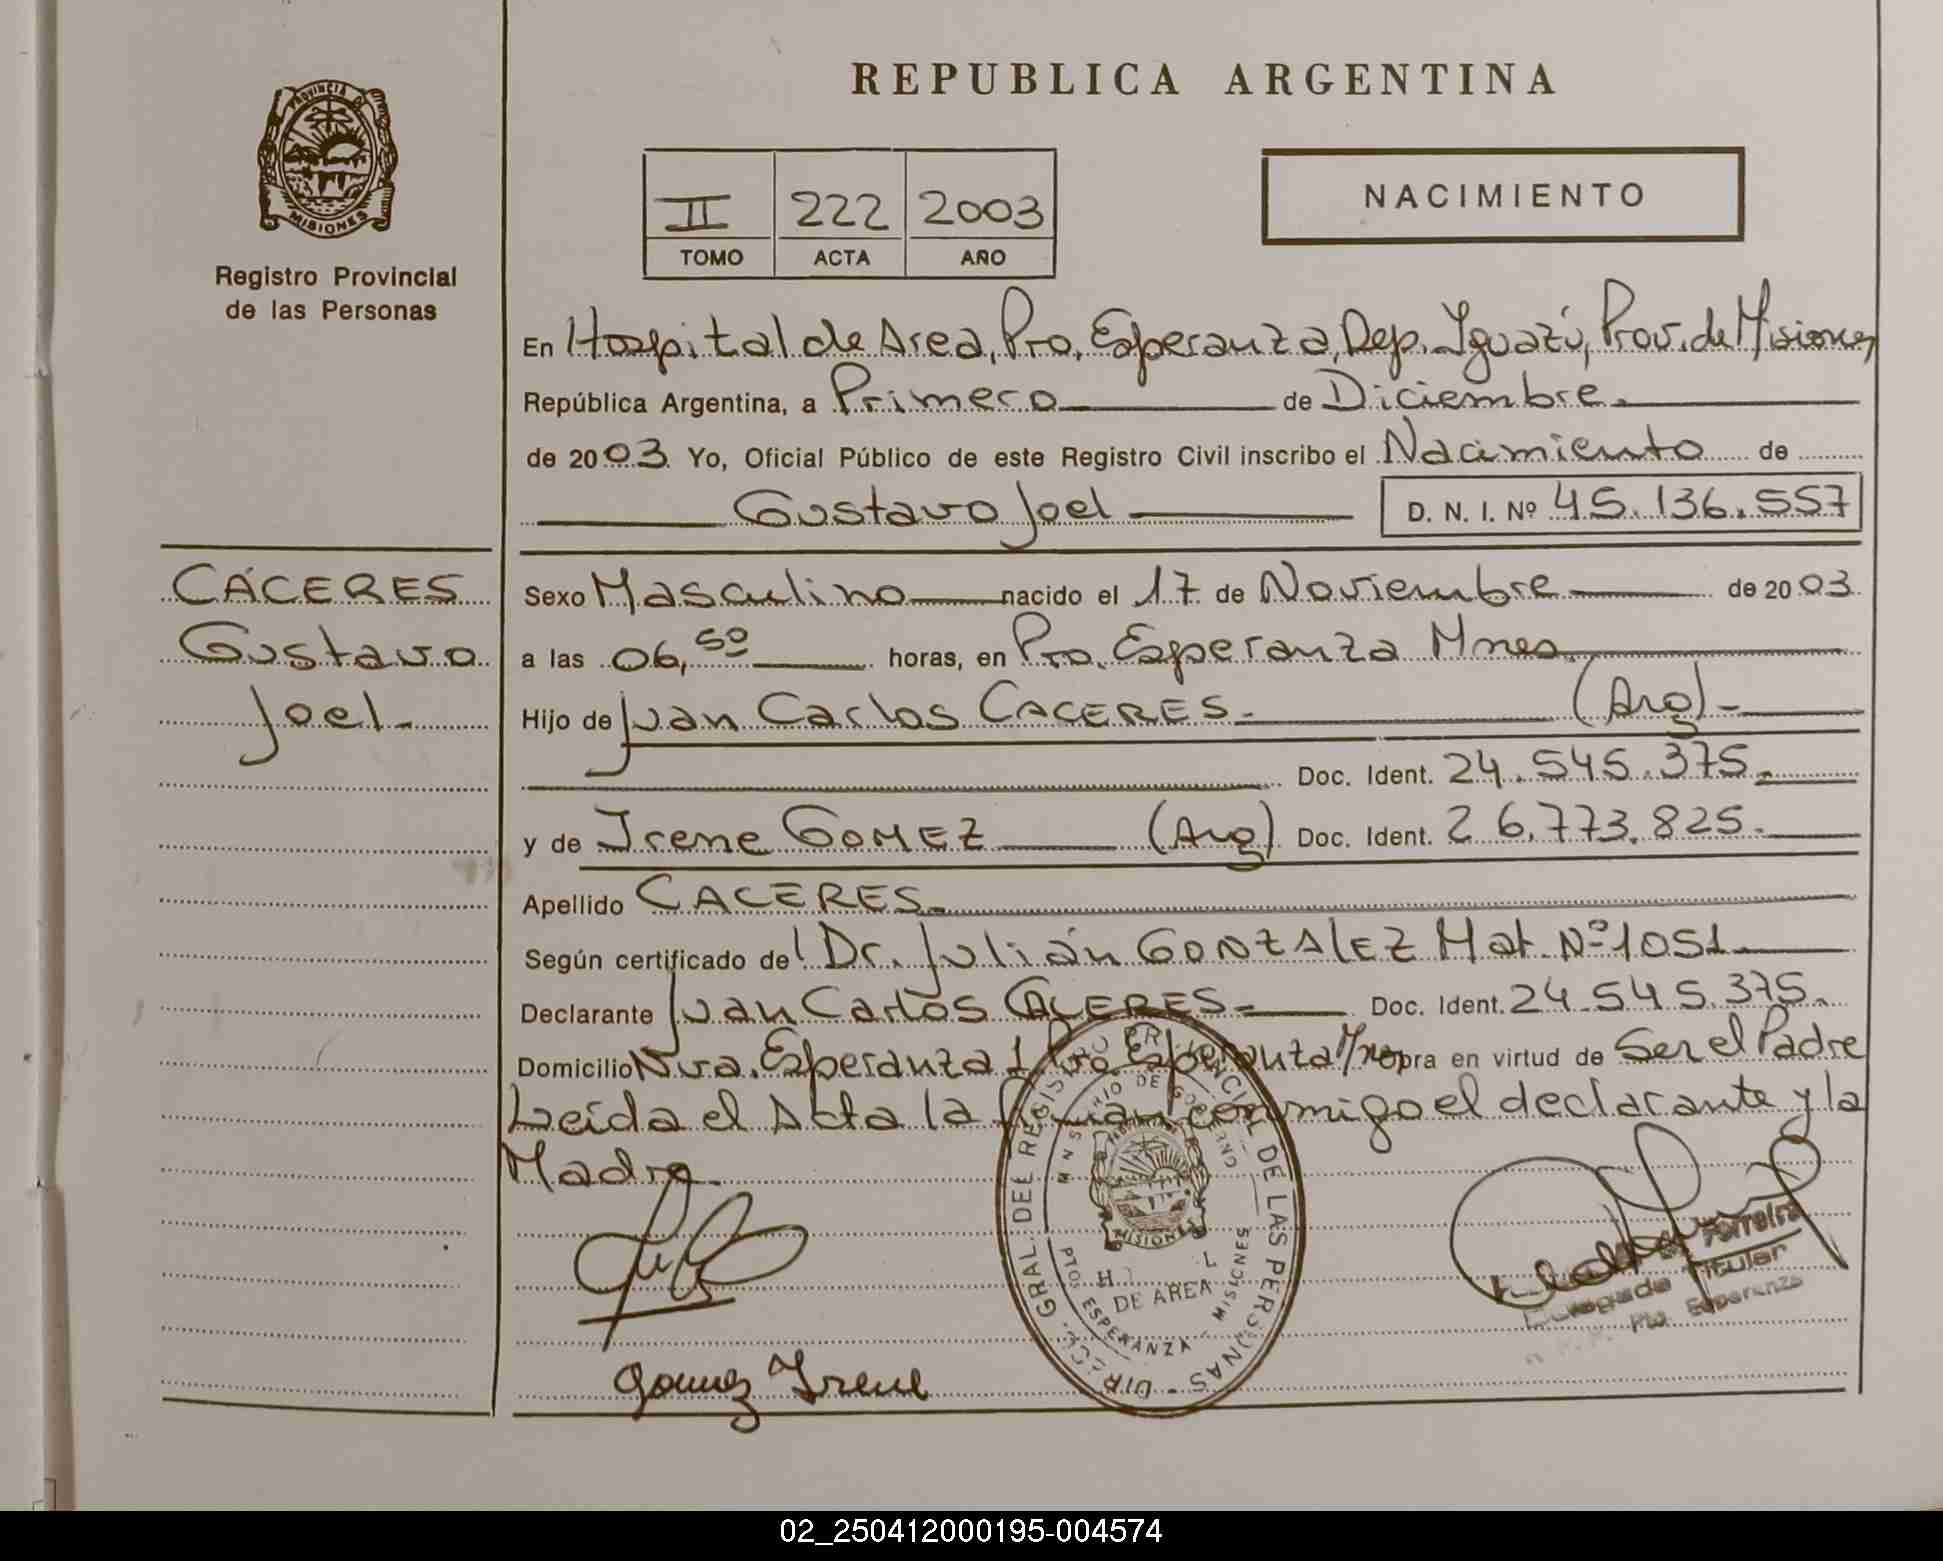 REPUBLICA ARGENTINA
PROVINCIA DE
MISIONES
Registro Provincial
de las Personas
II 222 2003
TOMO ACTA AÑO
NACIMIENTO
En Hospital de Area, Pto. Esperanza, Dep. Iguazú, Prov. de Misiones
República Argentina, a Primero de Diciembre.
de 2003. Yo, Oficial Público de este Registro Civil inscribo el Nacimiento de
Gustavo Joel D. N. I. Nº 45.136.557
CÁCERES
Gustavo
Joel.-
Sexo Masculino nacido el 17 de Noviembre de 2003
a las 06,50 horas, en Pto. Esperanza Mnes.
Hijo de Juan Carlos CACERES.- (Arg)-
Doc. Ident. 24.545.375.-
y de Irene GOMEZ (Arg) Doc. Ident. 26.773.825.-
Apellido CACERES.-
Según certificado del Dr. Julián GONZALEZ Mat. Nº 1051.-
Declarante Juan Carlos CACERES.- Doc. Ident. 24.545.375.-
Domicilio Nva. Esperanza Pto. Esperanza Mnes opra en virtud de Ser el Padre
Leída el Acta la firman conmigo el declarante y la
Madre.
DIRECC. GRAL. DEL REGISTRO PROVINCIAL DE LAS PERSONAS
DE GOBIERNO
MISIONES
DE AREA
PTO. ESPERANZA - MISIONES
Ferreira
Delegada Titular
Pto. Esperanza
Gomez Irene
02_250412000195-004574